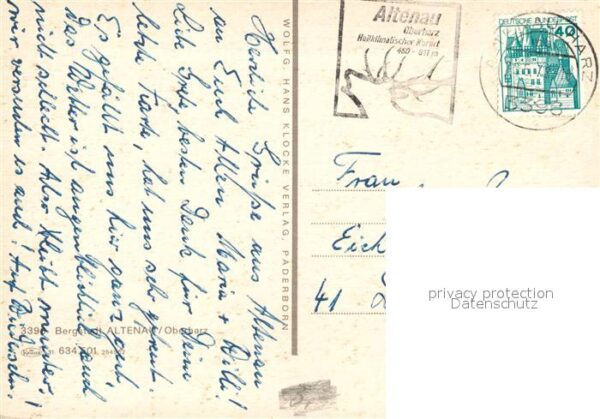 Herzliche Grüße aus Altenau
an Euch Allen Maria + Willi!
Liebe Grete, besten Dank für Deine
liebe Karte, hat uns sehr gefreut.
Es gefällt uns hier ganz gut,
das Wetter ist augenblicklich auch
nicht schlecht. Also bleibt munter!
wir versuchen es auch! Auf Wiedersehn.
WOLFG. HANS KLOCKE VERLAG, PADERBORN
3396 Bergstadt ALTENAU/Oberharz
634 501
Altenau
Oberharz
Heilklimatischer Kurort
450 - 811 m
DEUTSCHE BUNDESPOST
40
HARZ
Frau
Eich
41
privacy protection
Datenschutz